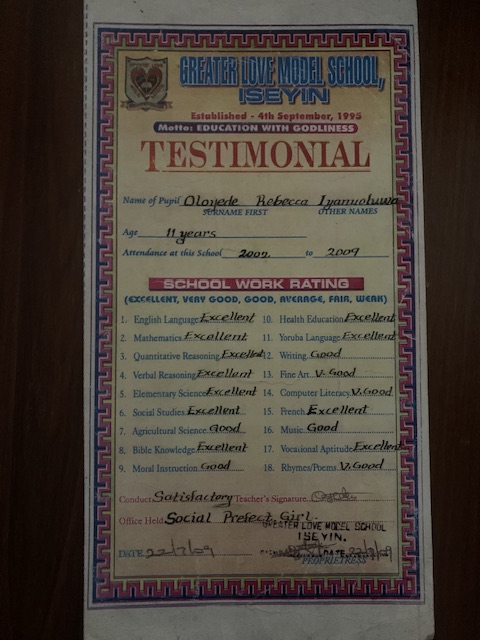 GREATER LOVE MODEL SCHOOL,
ISEYIN
Established - 4th September, 1995
Motto: EDUCATION WITH GODLINESS
TESTIMONIAL
Name of Pupil Oloyede Rebecca Iyanuoluwa
SURNAME FIRST OTHER NAMES
Age 11 years
Attendance at this School 2007. to 2009
SCHOOL WORK RATING
(EXCELLENT, VERY GOOD, GOOD, AVERAGE, FAIR, WEAK)
1. English Language Excellent 10. Health Education Excellent
2. Mathematics Excellent 11. Yoruba Language Excellent
3. Quantitative Reasoning Excellent 12. Writing Good
4. Verbal Reasoning Excellent 13. Fine Art V. Good
5. Elementary Science Excellent 14. Computer Literacy V. Good
6. Social Studies Excellent 15. French Excellent
7. Agricultural Science Good 16. Music Good
8. Bible Knowledge Excellent 17. Vocasional Aptitude Excellent
9. Moral Instruction Good 18. Rhymes/Poems V. Good
Conduct Satisfactory Teacher's Signature
Office Held Social Prefect Girl
GREATER LOVE MODEL SCHOOL
ISEYIN.
DATE 22/7/09 DATE 22/7/09
PROPRIETRESS